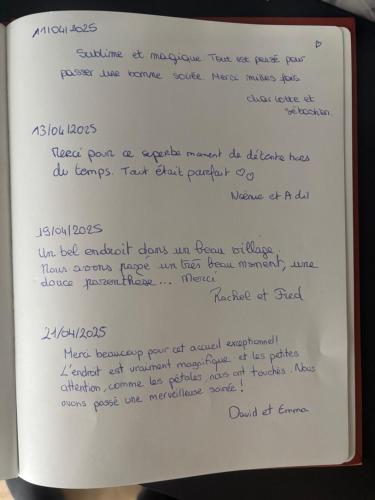 11/04/2025
Sublime et magique Tout est pensé pour
passer une bonne soirée. Merci milles fois
charlotte et
sébastien.
13/04/2025
Merci pour ce superbe moment de détente hors
du temps. Tout était parfait ♡♡
Noémie et Adil
19/04/2025
Un bel endroit dans un beau village.
Nous avons passé un très beau moment, une
douce parenthèse... Merci
Rachel et Fred
21/04/2025
Merci beaucoup pour cet accueil exceptionnel!
L'endroit est vraiment magnifique et les petites
attention, comme les pétales, nous ont touchés. Nous
avons passé une merveilleuse soirée!
David et Emma